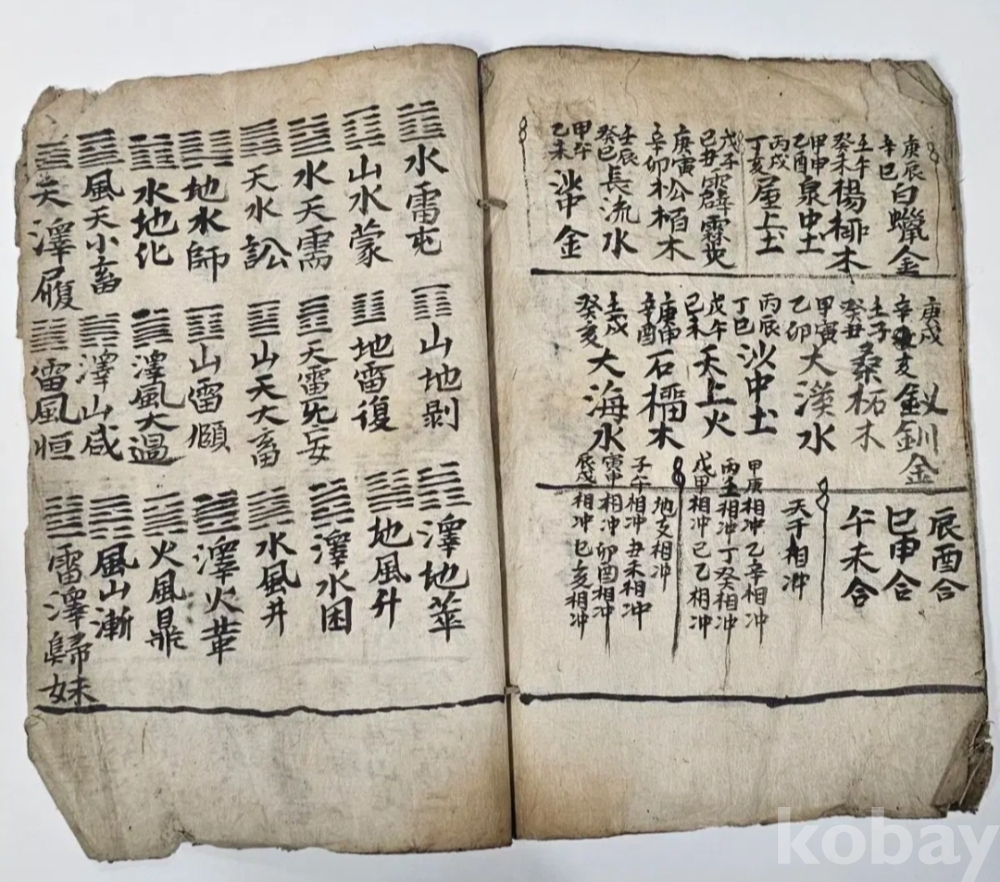 庚辰
辛巳
白蠟金
壬午
癸未
楊柳木
甲申
乙酉
泉中土
丙戌
丁亥
屋上土
戊子
己丑
霹靂
庚寅
辛卯
松栢木
壬辰
癸巳
長流水
甲午
乙未
沙中金
庚戌
辛亥
釵釧金
壬子
癸丑
桑柘木
甲寅
乙卯
大溪水
丙辰
丁巳
沙中土
戊午
己未
天上火
庚申
辛酉
石榴木
壬戌
癸亥
大海水
辰酉合
巳申合
午未合
天干相冲
甲庚相冲乙辛相冲
丙壬相冲丁癸相冲
戊甲相冲己乙相冲
地支相冲
子午相冲丑未相冲
寅申相冲卯酉相冲
辰戌相冲巳亥相冲
水雷屯
山水蒙
水天需
天水訟
地水師
水地化
風天小畜
天澤履
山地剥
地雷復
天雷旡妄
山天大畜
山雷頤
澤風大過
澤山咸
雷風恒
澤地萃
地風升
澤水困
水風井
澤火革
火風鼎
風山漸
雷澤歸妹
kobay